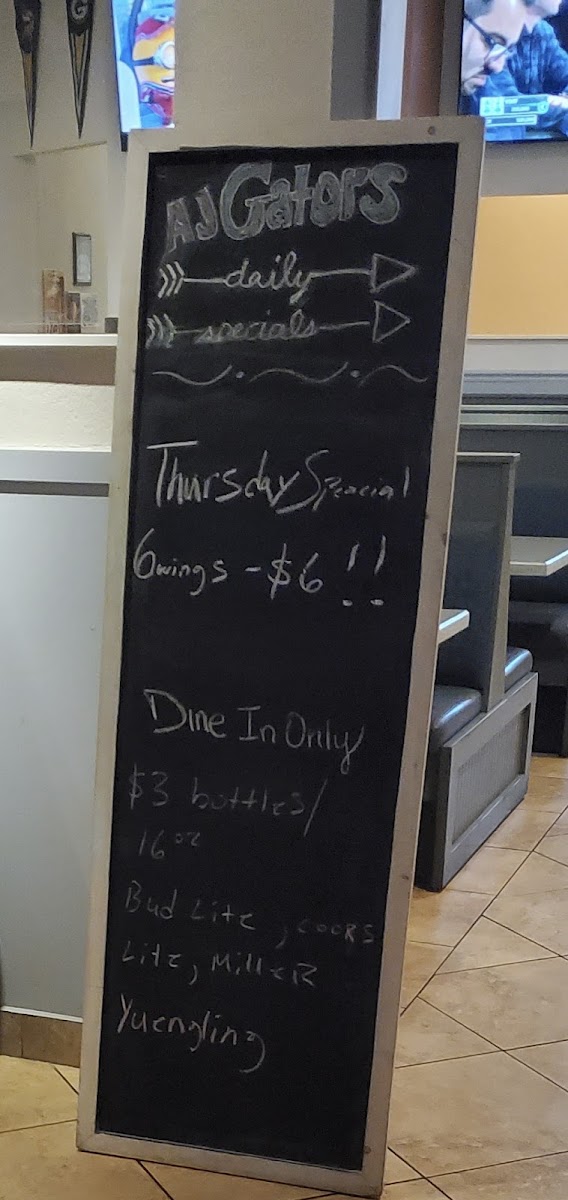 AJ Gators
daily
specials
Thursday Special
6 wings - $6 !!
Dine In Only
$3 bottles/
16oz
Bud Lite, coors
Lite, Miller
Yuengling